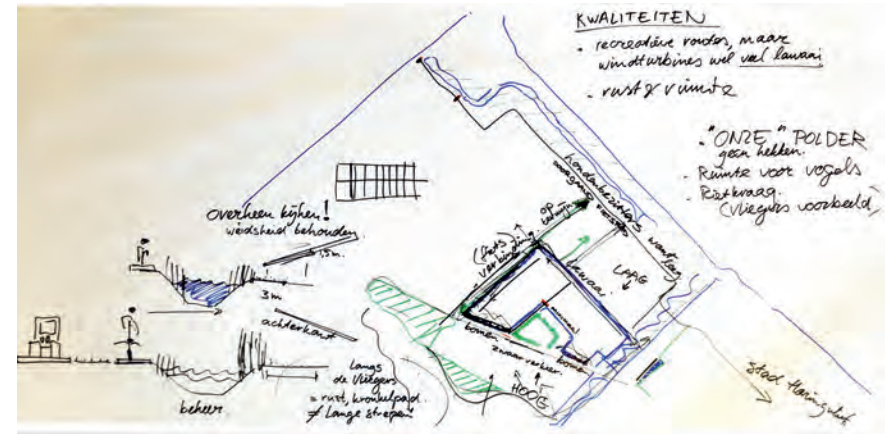 KWALITEITEN
- recreatieve routes, maar
windturbines wel veel lawaai
- rust & ruimte
- "ONZE" POLDER
geen hekken.
- Ruimte voor vogels
- Rietkraag.
(Vliegers voorbeeld)
overheen kijken!
weidsheid behouden
1,5m.
3m
achterkant
beheer
Langs
de Vliegers
= rust, kronkelpad.
≠ Lange strepen
hondenbezitters wandelen
op
(fiets)
verbinding
LAAG
bomen
zwaar verkeer
bomen
HOOG
Stad